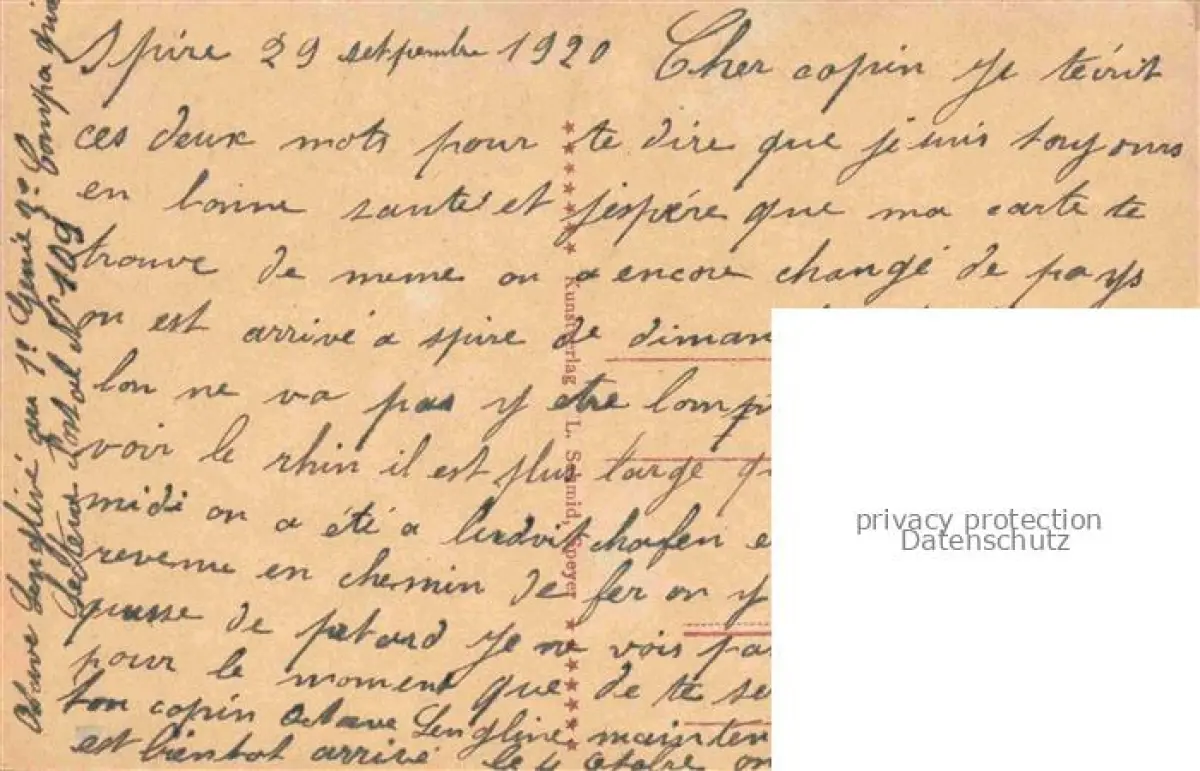 Spire 29 setpembre 1920 Cher copin Je técrit
ces deux mots pour te dire que je suis toujours
en bonne santé et jéspére que ma carte te
trouve de meme on a encore changé de pays
on est arrivé a spire de diman
lon ne va pas y etre lomp
voir le rhin il est plus large q
midi on a été a
revenu en chemin de fer on y
de petard Je ne vois pa
pour le moment que de te se
ton copin Octave Lengliné mainten
est bientot arrivé le 4 on
Octave Lengliné au 1º Genie 9º Compagnie
postal Nº 109
Kunstverlag L. Schmid, Speyer
privacy protection
Datenschutz